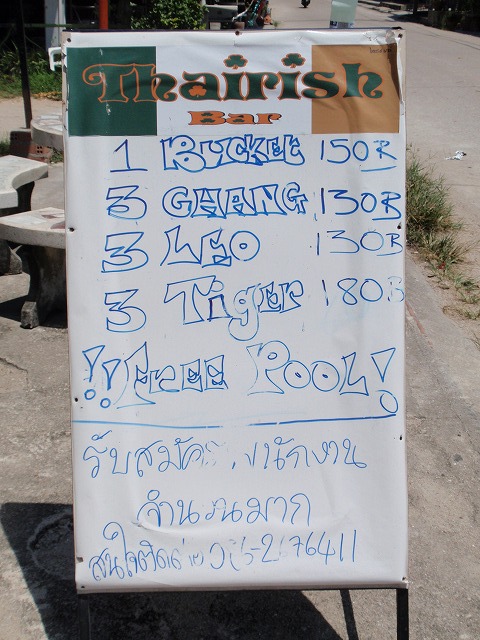 Thairish
Bar
1 BUCKET 150B
3 CHANG 130B
3 LEO 130B
3 Tiger 180B
!!FREE POOL!
รับสมัคร พนักงาน
จำนวนมาก
สนใจติดต่อ